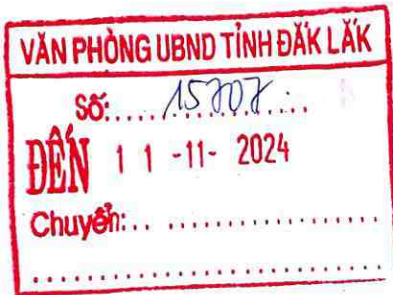 VĂN PHÒNG UBND TỈNH ĐẮK LẮK
Số:.................
ĐẾN 11 -11- 2024
Chuyển:.. ..................
.................................